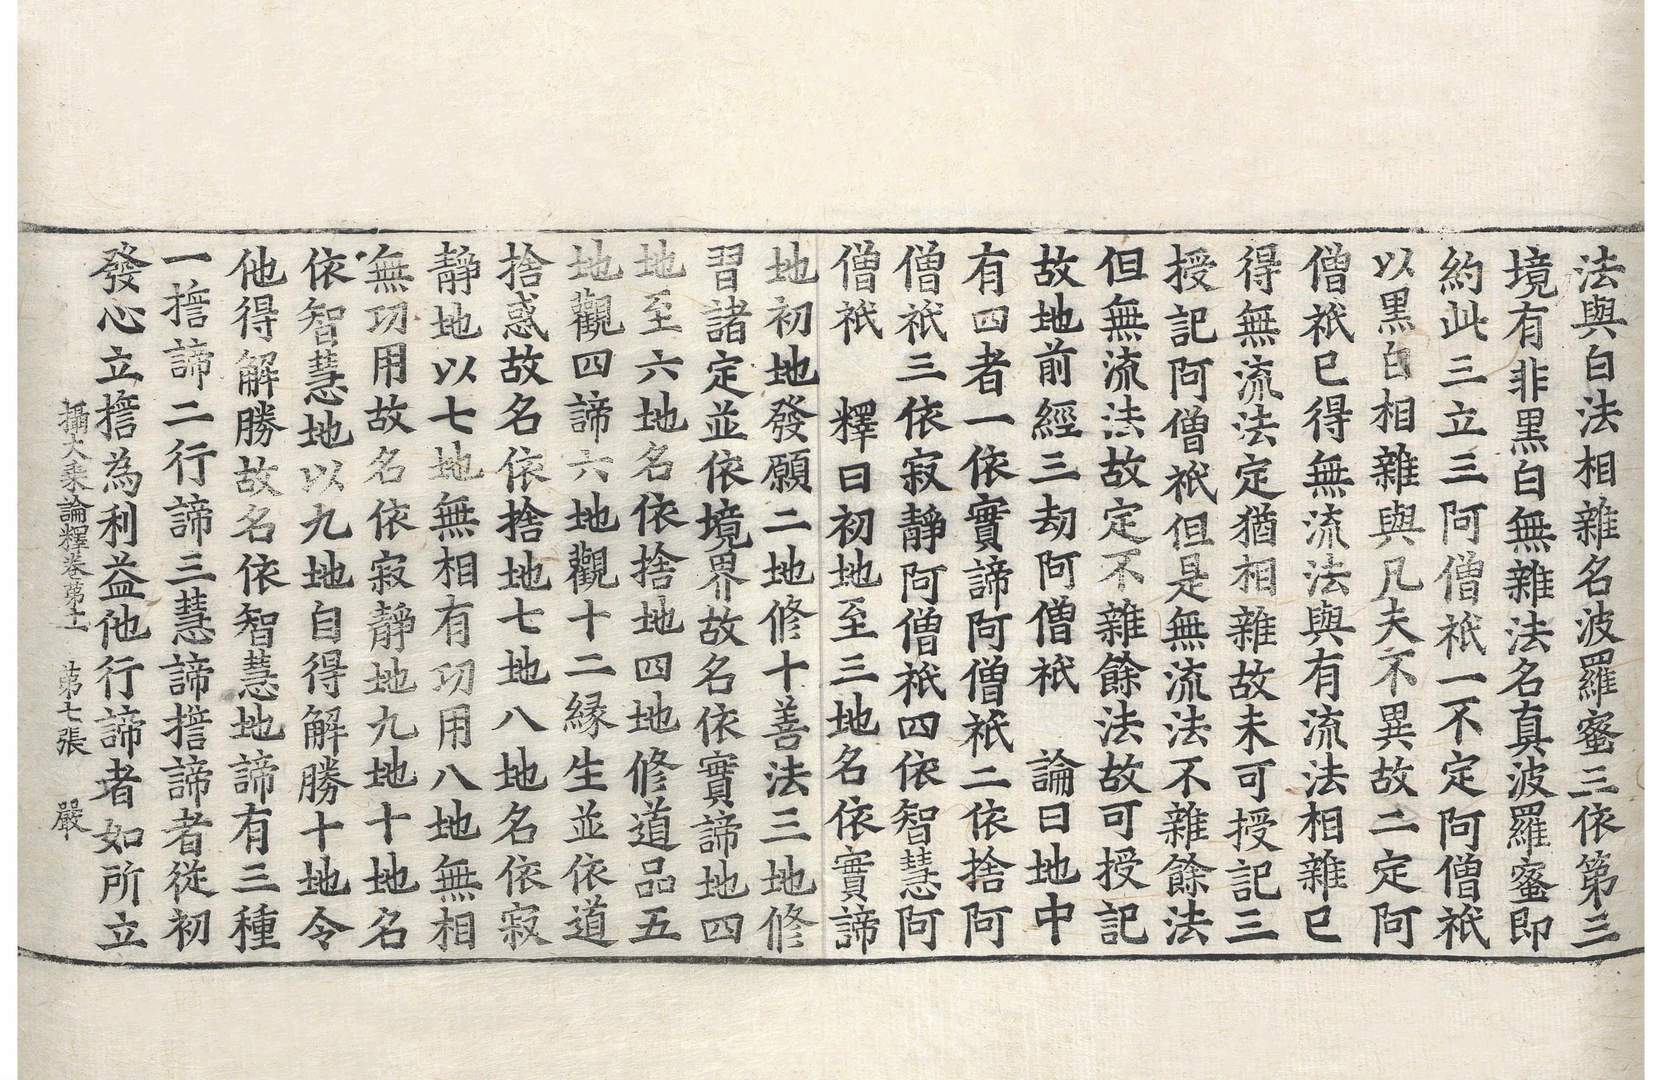 法與白法相雜名波羅蜜三依第三
境有非黑白無雜法名真波羅蜜即
約此三立三阿僧祇一不定阿僧祇
以黒白相雜與凡夫不異故二定阿
僧祇已得無流法與有流法相雜已
得無流法定猶相雜故未可授記三
授記阿僧祇但是無流法不雜餘法
但無流法故定不雜餘法故可授記
故地前經三劫阿僧祇　論曰地中
有四者一依實諦阿僧祇二依捨阿
僧祇三依寂靜阿僧祇四依智慧阿
僧祇　釋曰初地至三地名依實諦
地初地發願二地修十善法三地修
習諸定並依境界故名依實諦地四
地至六地名依捨地四地修道品五
地觀四諦六地觀十二緣生並依道
捨惑故名依捨地七地八地名依寂
靜地以七地無相有功用八地無相
無功用故名依寂靜地九地十地名
依智慧地以九地自得解勝十地令
他得解勝故名依智慧地諦有三種
一擔諦二行諦三慧諦擔諦者從初
發心立擔為利益他行諦者如所立
攝大乘論釋卷第十一　第七張　嚴